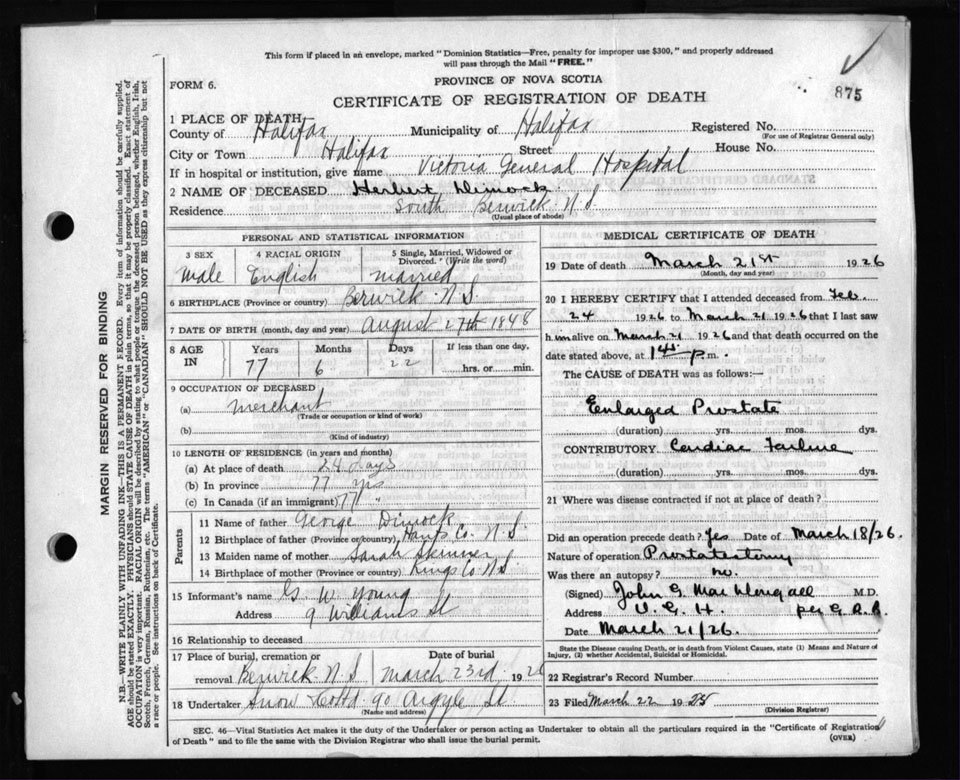 This form if placed in an envelope, marked "Dominion Statistics—Free, penalty for improper use $300," and properly addressed
will pass through the Mail "FREE."
FORM 6.
PROVINCE OF NOVA SCOTIA
875
CERTIFICATE OF REGISTRATION OF DEATH
1 PLACE OF DEATH
County of Halifax Municipality of Halifax Registered No.
(For use of Registrar General only)
City or Town Halifax Street House No.
If in hospital or institution, give name Victoria General Hospital
2 NAME OF DECEASED Herbert Dimock
Residence South Berwick N.S.
(Usual place of abode)
PERSONAL AND STATISTICAL INFORMATION
3 SEX 4 RACIAL ORIGIN 5 Single, Married, Widowed or
Divorced. (Write the word)
Male English married
6 BIRTHPLACE (Province or country) Berwick N.S.
7 DATE OF BIRTH (month, day and year) August 27th 1848
8 AGE IN Years Months Days If less than one day,
77 6 22 hrs. or min.
9 OCCUPATION OF DECEASED
(a) merchant
(Trade or occupation or kind of work)
(b)
(Kind of industry)
10 LENGTH OF RESIDENCE (in years and months)
(a) At place of death 24 days
(b) In province 77 yrs
(c) In Canada (if an immigrant) 77 "
Parents
11 Name of father George Dimock
12 Birthplace of father (Province or country) Hants Co. N.S.
13 Maiden name of mother Sarah Skinner
14 Birthplace of mother (Province or country) Kings Co. N.S.
15 Informant's name G. W. Young
Address 9 Williams St
16 Relationship to deceased
17 Place of burial, cremation or Date of burial
removal Berwick N.S. March 23rd, 1926
18 Undertaker Snow & Co Ltd. 90 Argyle St.
(Name and address)
MEDICAL CERTIFICATE OF DEATH
19 Date of death March 21st 1926
(Month, day and year)
20 I HEREBY CERTIFY that I attended deceased from Feb.
24 1926 to March 21 1926 that I last saw
him alive on March 21 1926 and that death occurred on
date stated above, at p m.
The CAUSE of DEATH was as follows:—
Enlarged Prostate
(duration) yrs. mos. dys.
CONTRIBUTORY Cardiac Failure
(duration) yrs. mos. dys.
21 Where was disease contracted if not at place of death?
Did an operation precede death? Yes Date of March 18/26.
Nature of operation Prostatectomy
Was there an autopsy? no.
(Signed) John G. MacDougall M.D.
Address V. G. H. per G.R.B.
Date March 21/26.
State the Disease causing Death, or in death from Violent Causes, state (1) Means and Nature of
Injury, (2) whether Accidental, Suicidal or Homicidal.
22 Registrar's Record Number
23 Filed March 22 1925
(Division Registrar)
SEC. 46—Vital Statistics Act makes it the duty of the Undertaker or person acting as Undertaker to obtain all the particulars required in the "Certificate of Registration
of Death" and to file the same with the Division Registrar who shall issue the burial permit.
(OVER)
MARGIN RESERVED FOR BINDING
N.B.—WRITE PLAINLY WITH UNFADING INK—THIS IS A PERMANENT RECORD. Every item of information should be carefully supplied.
AGE should be stated EXACTLY. PHYSICIANS should STATE CAUSE OF DEATH in plain terms, so that it may be properly classified. Exact statement of
OCCUPATION is very important. RACIAL ORIGIN will be described by stating to what people or tongue the deceased person belonged, whether English, Irish,
Scotch, French, German, Russian, Ruthenian, etc. The terms "AMERICAN" or "CANADIAN" SHOULD NOT BE USED as they express citizenship but not
a race or people. See instructions on back of Certificate.